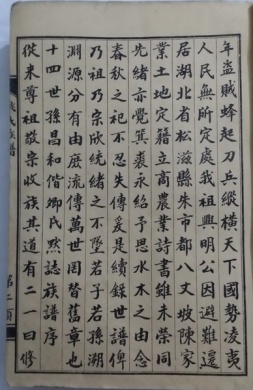 年盜賊蜂起刀兵縱橫天下國勢凌夷
人民無所定處我祖興明公因避難遷
居湖北省松滋縣朱市都八丈坡陳家
業土地定籍立高農業詩書雖未榮同
先緒亦覺箕裘永紹予思水木之由念
春秋之祀不忍失傳爰是續錄世譜俾
乃祖乃宗欣統緒之不墜若子若孫溯
淵源分有由庶流傳萬世罔替舊章也
十四世孫昌和偕鄉氏默誌族譜序
從來尊祖敬宗收族其道有二一曰修
氏族譜
第二頁